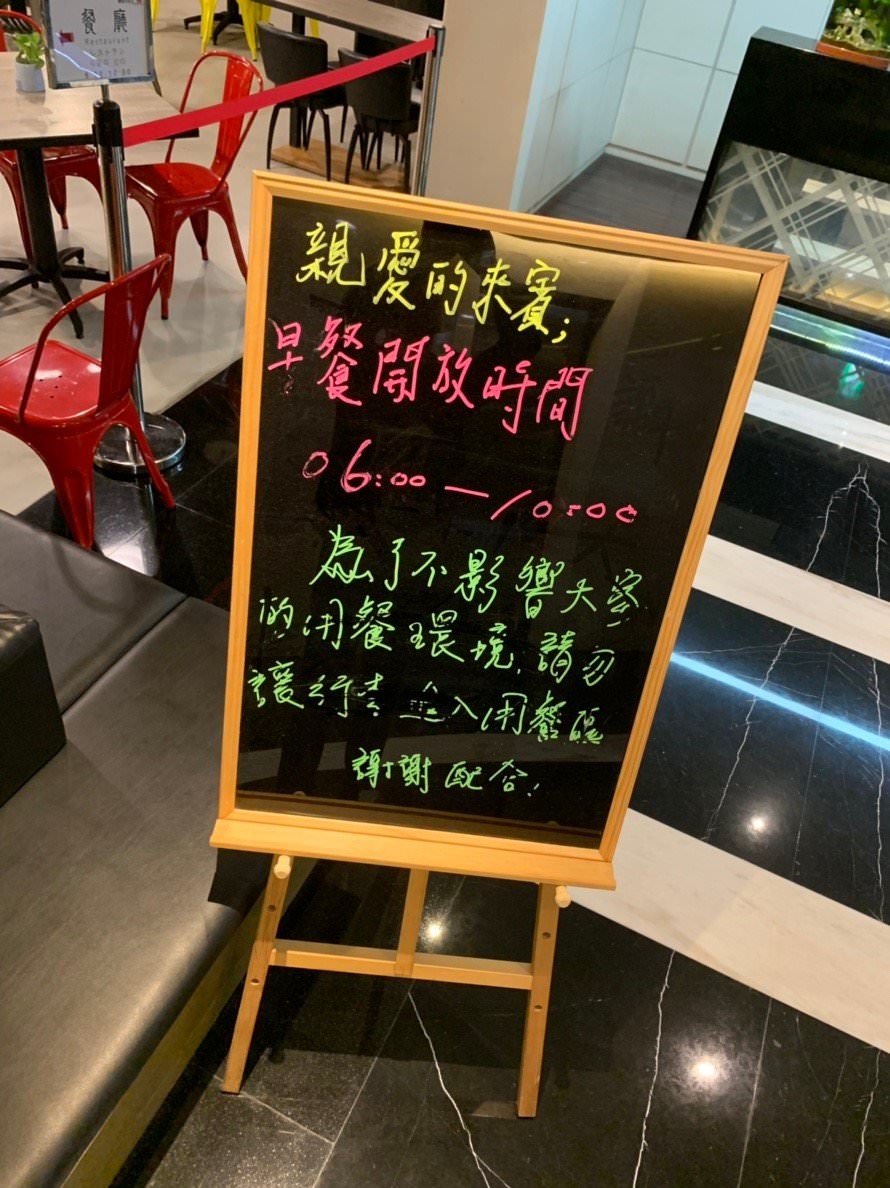 餐廳
Restaurant
レストラン
親愛的來賓;
早餐開放時間
06:00—10:00
為了不影響大家
的用餐環境,請勿
讓行李進入用餐區
謝謝配合!